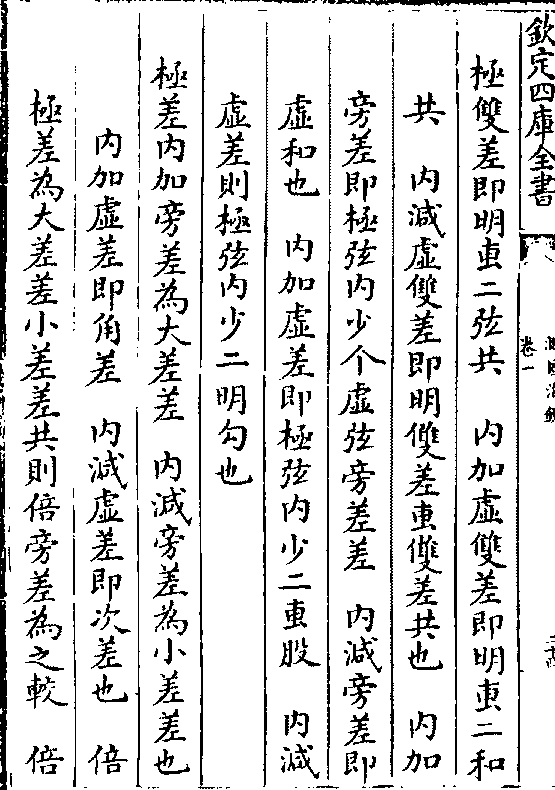 欽定四庫全書
卷一
極雙差即明叀二弦共　内加虛雙差即明叀二和
共　内減虛雙差即明雙差叀雙差共也　内加
旁差即極弦内少个虛弦旁差差　内減旁差即
虛和也　内加虛差即極弦内少二叀股　内減
虛差則極弦内少二明勾也
極差内加旁差為大差差　内減旁差為小差差也
内加虛差即角差　内減虛差即次差也　倍
極差為大差差小差差共則倍旁差為之較　倍